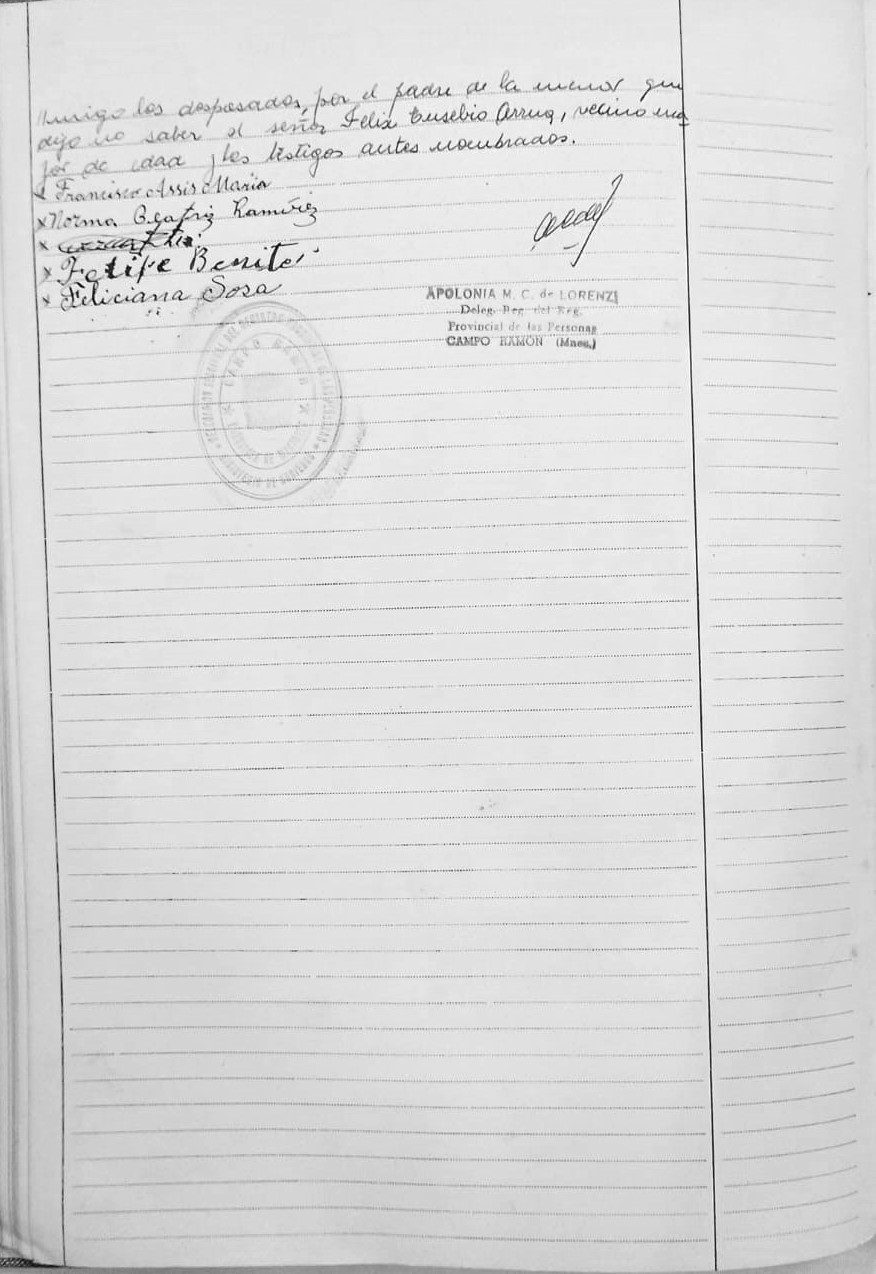 conmigo los desposados, por el padre de la menor que
dijo no saber el señor Felix Eusebio Arrua, vecino ma
yor de edad y los testigos antes nombrados.
x Francisco Assis Maria
x Norma Beatriz Ramírez
x
x Felipe Benites
x Feliciana Sosa
APOLONIA M. C. de LORENZI
Deleg. Reg. del Reg.
Provincial de las Personas
CAMPO RAMON (Mnes.)
CAMPO RAMON